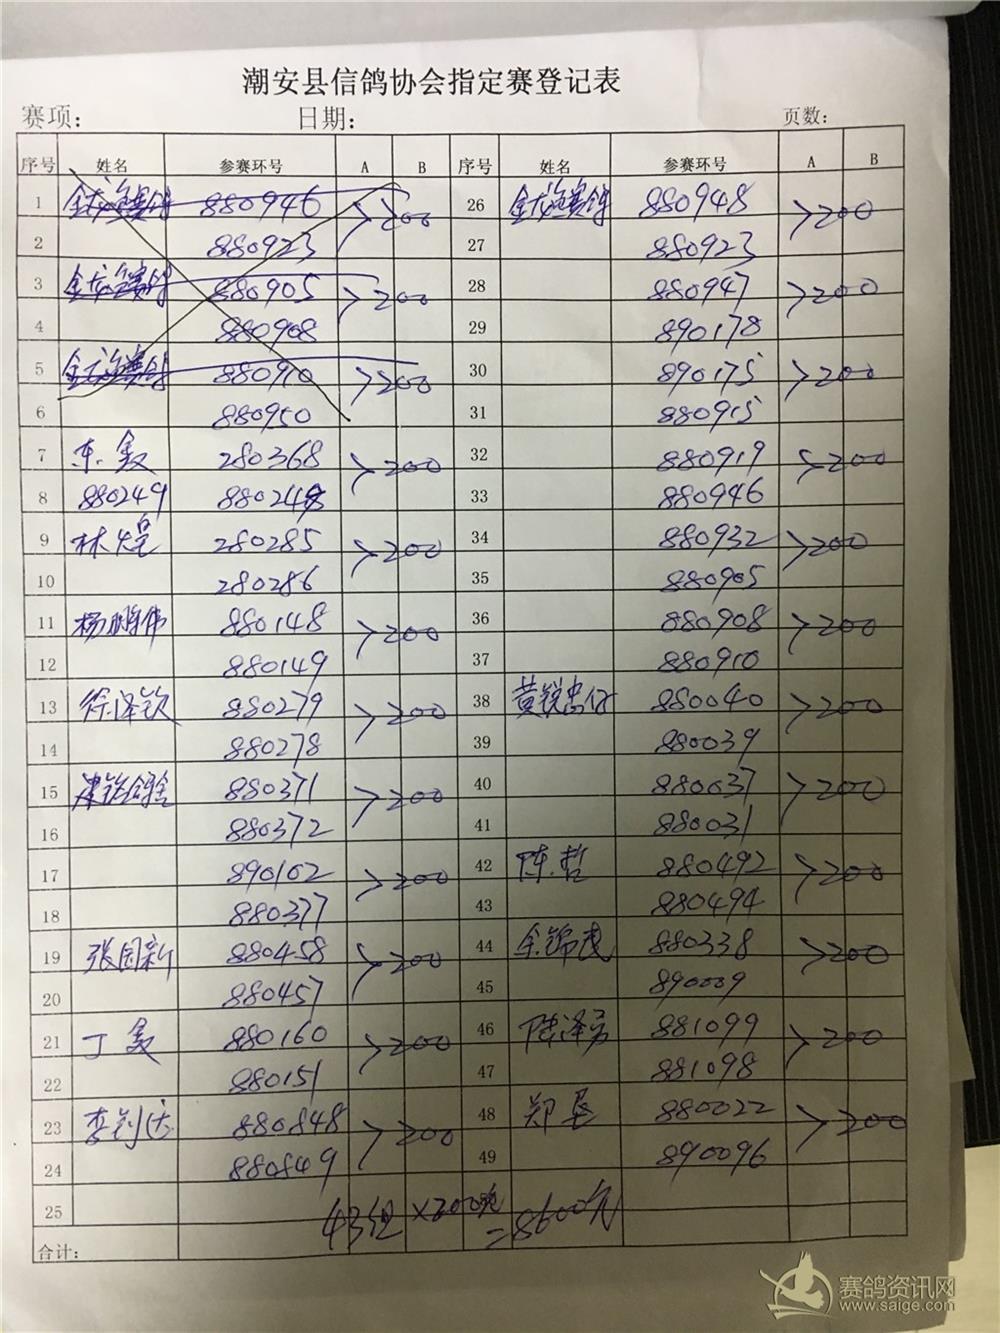 潮安县信鸽协会指定赛登记表
赛项： 日期： 页数：
序号 姓名 参赛环号 A B 序号 姓名 参赛环号 A B
1 金龙追赛鸽 880946 >200 26 金龙追赛鸽 880948 >200
2 880923 27 880923
3 金龙追赛鸽 880905 >200 28 880947 >200
4 880908 29 890178
5 金龙追赛鸽 880910 >200 30 890175 >200
6 880950 31 880915
7 东 280368 >200 32 880919 >200
8 880249 880248 33 880946
9 林煌 280285 >200 34 880932 >200
10 280286 35 880905
11 杨鹏伟 880148 >200 36 880908 >200
12 880149 37 880910
13 徐泽钦 880279 >200 38 黄锐忠仔 880040 >200
14 880278 39 880039
15 880371 >200 40 880037 >200
16 880372 41 880031
17 890102 >200 42 陈哲 880492 >200
18 880377 43 880494
19 张国新 880458 >200 44 余锦茂 880338 >200
20 880457 45 890009
21 丁 880160 >200 46 陆泽 881099 >200
22 880151 47 881098
23 李钊 880848 >200 48 郑 880022 >200
24 880849 49 890096
25 43组×200元=8600元
合计：
赛鸽资讯网
www.saige.com